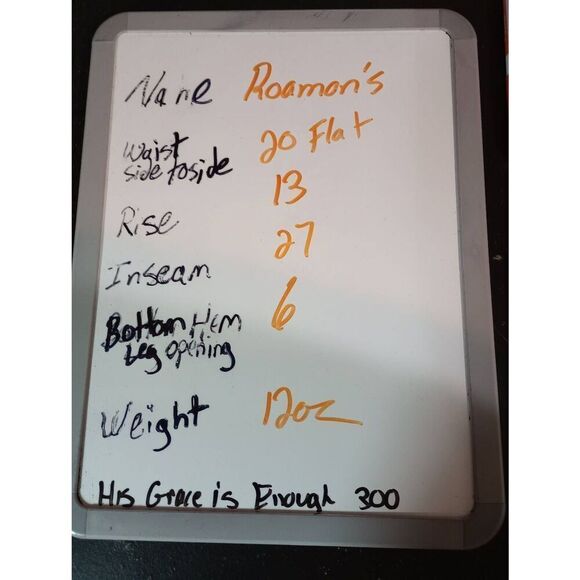 Name Roamon's
Waist
side to side 20 Flat
Rise 13
Inseam 27
Bottom Hem
Leg opening 6
Weight 12oz
His Grace is Enough 300